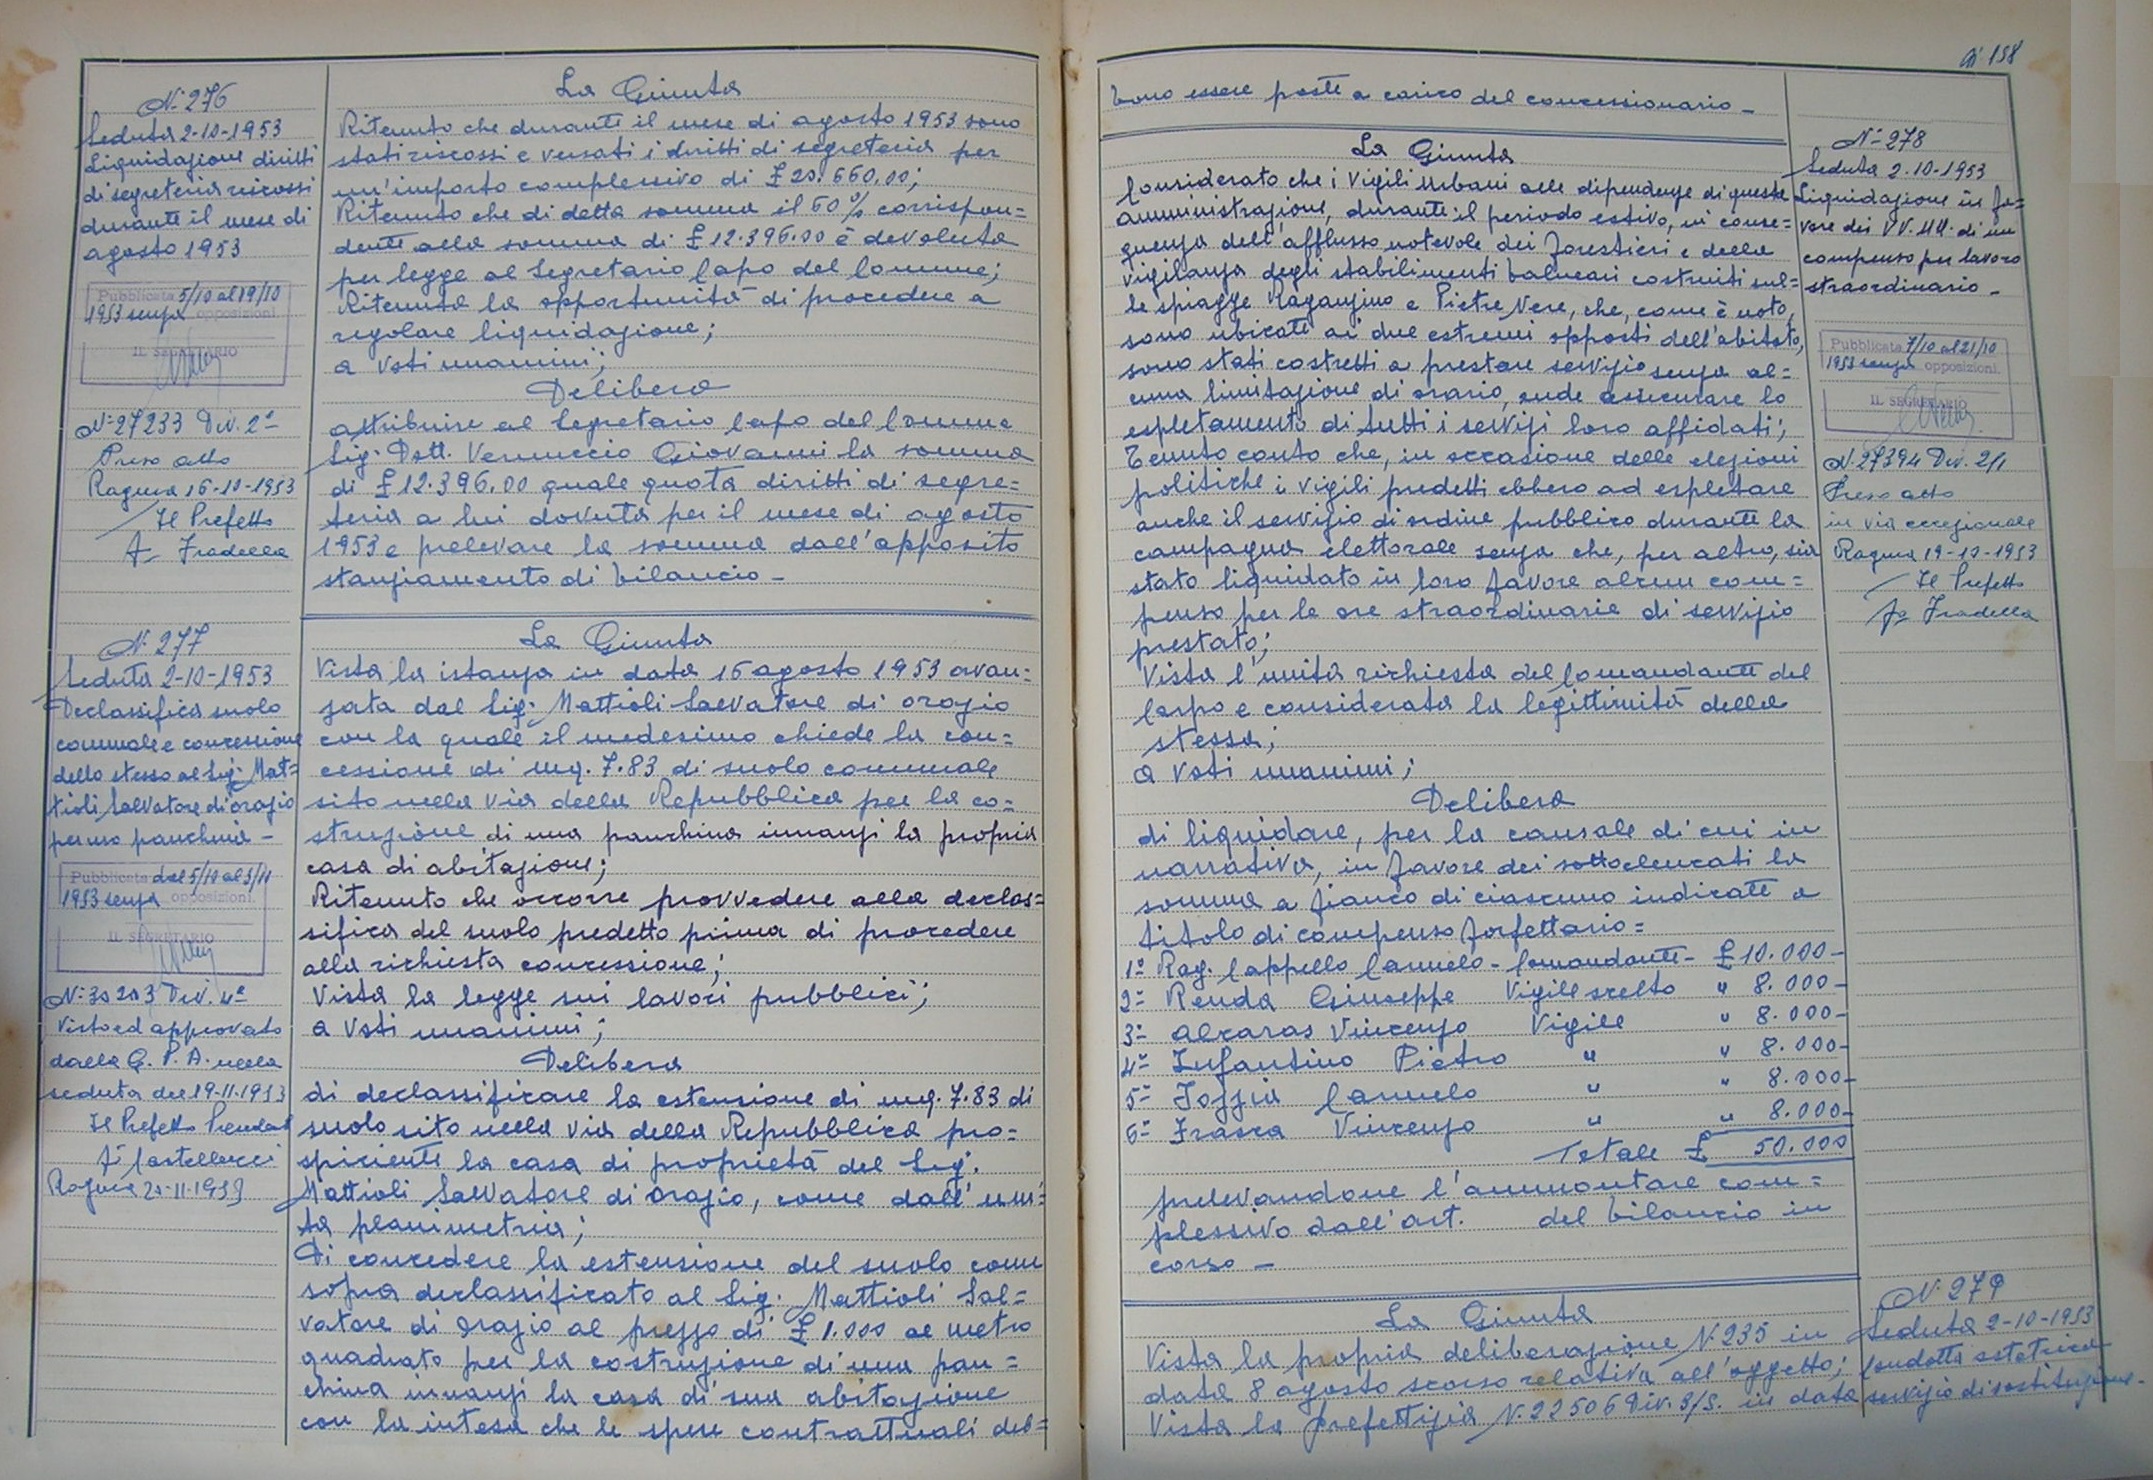 N. 276
Seduta 2-10-1953
Liquidazione diritti
di segreteria riscossi
durante il mese di
agosto 1953
Pubblicata 5/10 al 19/10
1953 senza opposizioni
IL SEGRETARIO
N. 27233 Div. 2ª
Preso atto
Ragusa 16-10-1953
Il Prefetto
Fradella
N. 277
Seduta 2-10-1953
Declassifica suolo
comunale e concessione
dello stesso al Sig. Mat=
tioli Salvatore di Orazio
per uso panchina -
Pubblicata dal 5/10 al 3/11
1953 senza opposizioni.
IL SEGRETARIO
N. 30203 Div. 4ª
Visto ed approvato
dalla G. P. A. nella
seduta del 19-11-1953
Il Prefetto
Castellucci
Ragusa 20-11-1953
La Giunta
Ritenuto che durante il mese di agosto 1953 sono
stati riscossi e versati i diritti di segreteria per
un'importo complessivo di £ 20.660.00;
Ritenuto che di detta somma il 60% corrispon=
dente alla somma di £ 12.396.00 è devoluta
per legge al Segretario Capo del Comune;
Ritenuta la opportunità di procedere a
regolare liquidazione;
a voti unanimi;
Delibera
attribuire al Segretario Capo del Comune
Sig. Dott. Vernuccio Giovanni la somma
di £ 12.396.00 quale quota diritti di segre=
teria a lui dovuta per il mese di agosto
1953 e prelevare la somma dall'apposito
stanziamento di bilancio -
La Giunta
Vista la istanza in data 16 agosto 1953 avan=
zata dal Sig. Mattioli Salvatore di Orazio
con la quale il medesimo chiede la con=
cessione di mq. 7.83 di suolo comunale
sito nella Via della Repubblica per la co=
struzione di una panchina innanzi la propria
casa di abitazione;
Ritenuto che occorre provvedere alla declas=
sifica del suolo predetto prima di procedere
alla richiesta concessione;
Vista la legge sui lavori pubblici;
a voti unanimi;
Delibera
di declassificare la estensione di mq. 7.83 di
suolo sito nella Via della Repubblica pro=
spiciente la casa di proprietà del Sig.
Mattioli Salvatore di Orazio, come dall'uni=
ta planimetria;
Di concedere la estensione del suolo come
sopra declassificato al Sig. Mattioli Sal=
vatore di Orazio al prezzo di £ 1.000 al metro
quadrato per la costruzione di una pan=
china innanzi la casa di sua abitazione
con la intesa che le spese contrattuali deb=
158
bono essere poste a carico del concessionario -
La Giunta
Considerato che i Vigili Urbani alle dipendenze di questa
Amministrazione, durante il periodo estivo, in conse=
guenza dell'afflusso notevole dei forestieri e della
vigilanza degli stabilimenti balneari costruiti sul=
le spiagge Raganzino e Pietre Nere, che, come è noto,
sono ubicate ai due estremi opposti dell'abitato,
sono stati costretti a prestare servizio senza al=
cuna limitazione di orario, onde assicurare lo
espletamento di tutti i servizi loro affidati;
Tenuto conto che, in occasione delle elezioni
politiche i vigili predetti ebbero ad espletare
anche il servizio di ordine pubblico durante la
campagna elettorale senza che, per altro, sia
stato liquidato in loro favore alcun com=
penso per le ore straordinarie di servizio
prestato;
Vista l'unita richiesta del Comandante del
Corpo e considerata la legittimità della
stessa;
a voti unanimi;
Delibera
di liquidare, per la causale di cui in
narrativa, in favore dei sottoelencati la
somma a fianco di ciascuno indicate a
titolo di compenso forfettario=
1º Rag. Cappello Carmelo - Comandante - £ 10.000-
2º Renda Giuseppe Vigile scelto " 8.000-
3º Alcaras Vincenzo Vigile " 8.000-
4º Infantino Pietro " " 8.000-
5º Carmelo " " 8.000-
6º Frasca Vincenzo " " 8.000-
Totale £ 50.000
prelevandone l'ammontare com=
plessivo dall'art. del bilancio in
corso -
La Giunta
Vista la propria deliberazione N. 235 in
data 8 agosto scorso relativa all'oggetto;
Vista la prefettizia N. 22506 Div. 3/S. in data
N. 278
Seduta 2-10-1953
Liquidazione in fa=
vore dei VV. UU. di un
compenso per lavoro
straordinario -
Pubblicata 7/10 al 21/10
1953 senza opposizioni.
IL SEGRETARIO
N. 27394 Div. 2/1
Preso atto
in via eccezionale
Ragusa 19-10-1953
Il Prefetto
Fradella
N. 279
Seduta 2-10-1953
Condotta ostetrica
servizio di sostituzione -